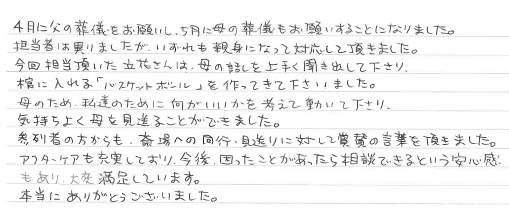 4月に父の葬儀をお願いし、5月に母の葬儀もお願いすることになりました。
担当者は異りましたが、いずれも親身になって対応して頂きました。
今回担当頂いた立花さんは、母の話しを上手く聞き出して下さり、
棺に入れる「バスケットボール」を作ってきて下さいました。
母のため、私達のために何がいいかを考えて動いて下さり、
気持ちよく母を見送ることができました。
参列者の方からも、斎場への同行・見送りに対して賞賛の言葉を頂きました。
アフターケアも充実しており、今後、困ったことがあったら相談できるという安心感
もあり、大変満足しています。
本当にありがとうございました。